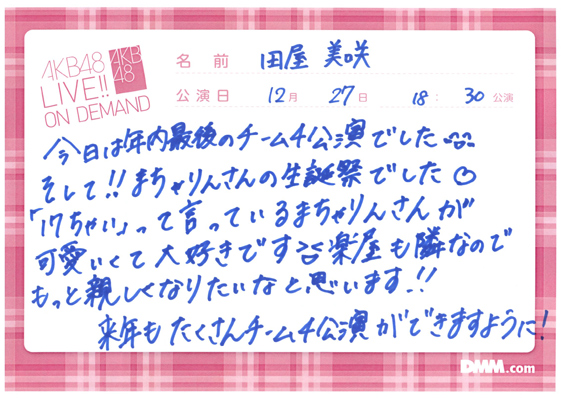 AKB48
LIVE!!
ON DEMAND
AKB
48
名前 田屋 美咲
公演日 12月 27日 18:30公演
今日は年内最後のチーム4公演でした
そして!!まちゃりんさんの生誕祭でした
「17ちゃい」って言っているまちゃりんさんが
可愛いくて大好きです 楽屋も隣なので
もっと親しくなりたいなと思います!!
来年もたくさんチーム4公演ができますように!
DMM.com